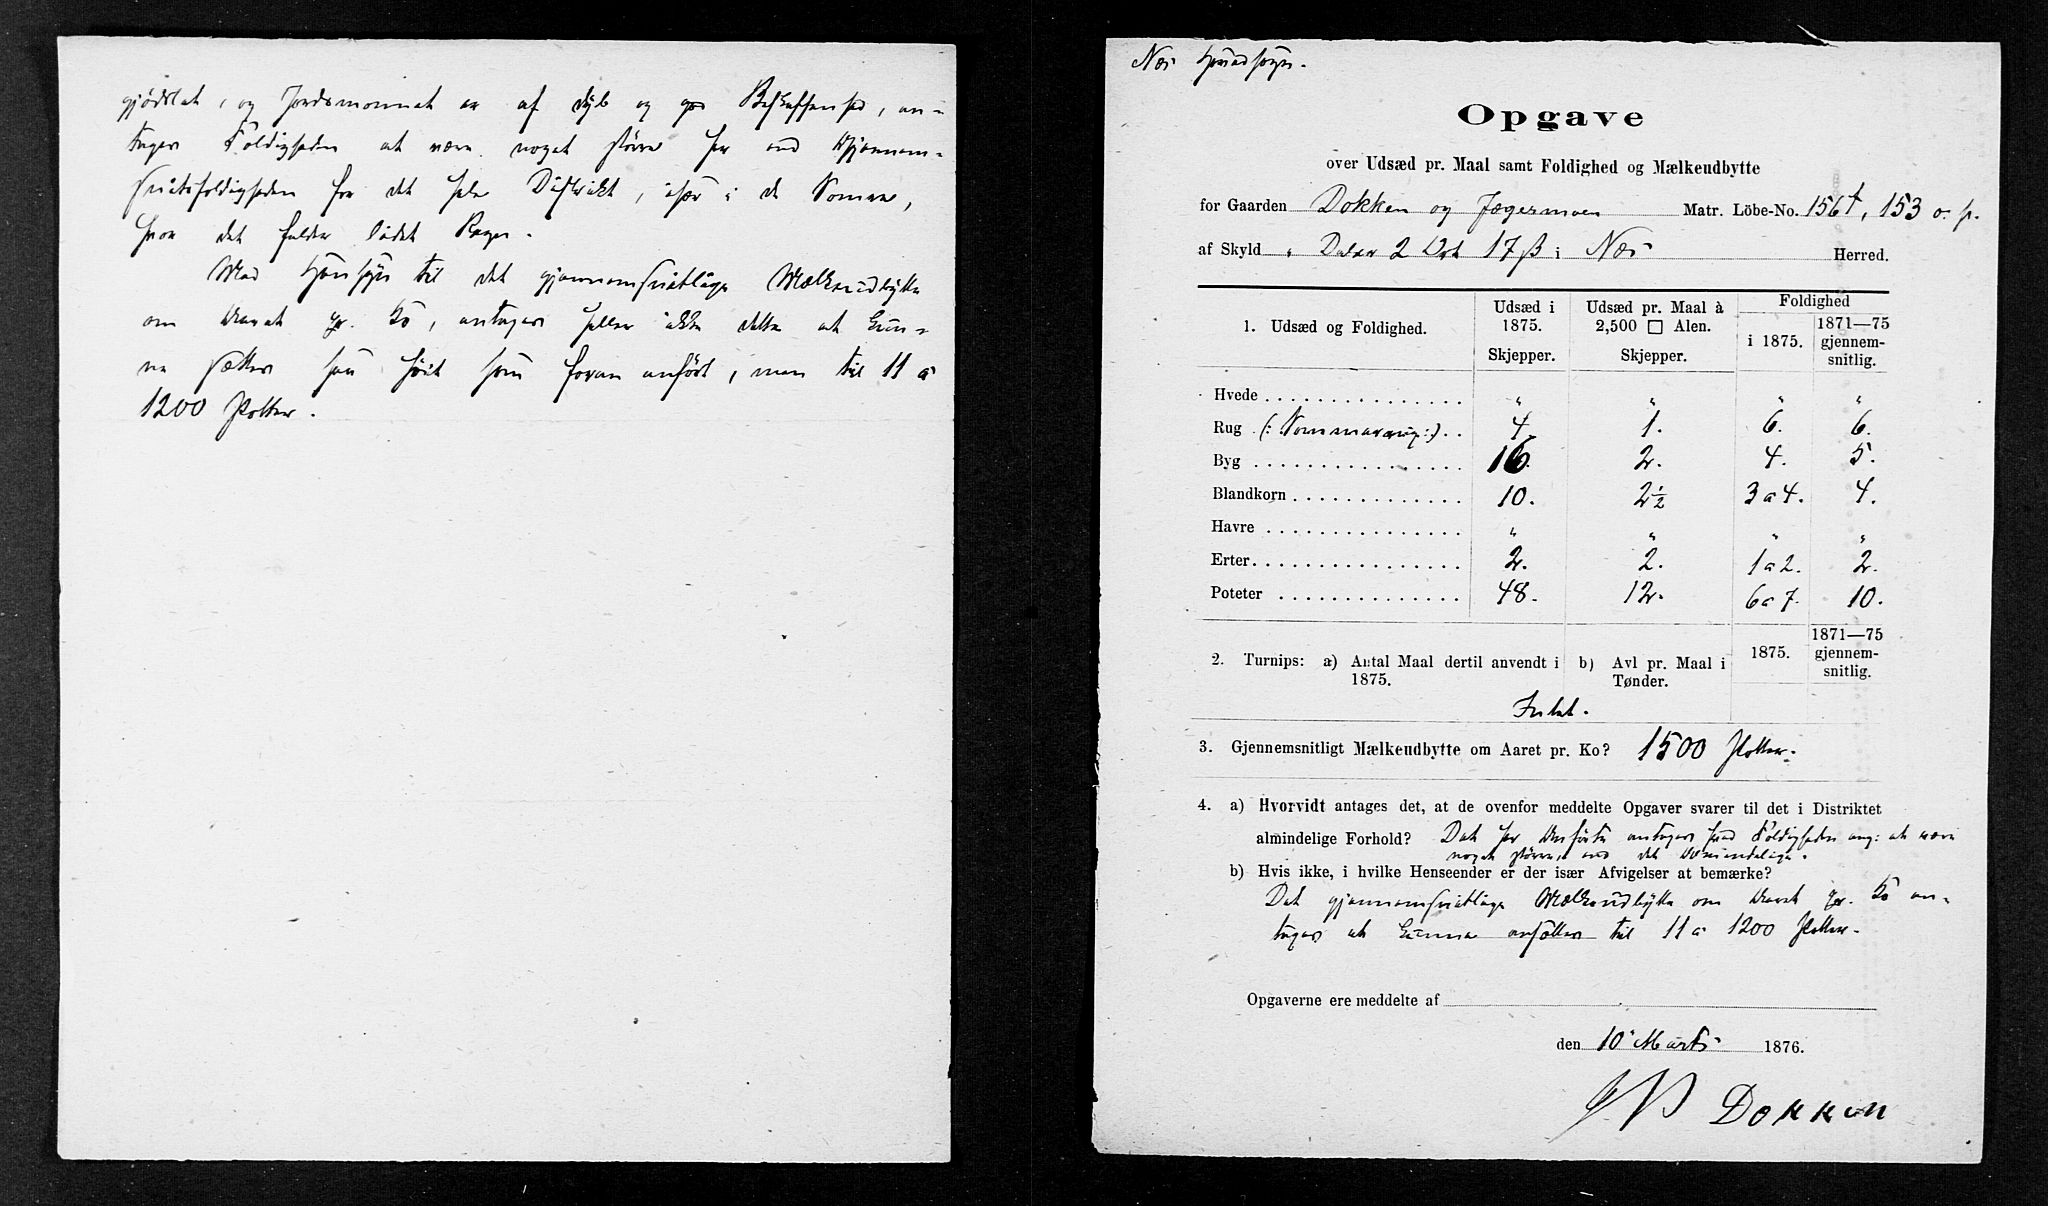 gjødslet, og Jordsmonnet er af dyb og god Beskaffenhed, an-
tages Foldigheden at være noget større her end Gjennem-
snitsfoldigheden for det hele Distrikt, især i de Somre,
hvor det falder lidet Regn.
Med Hensyn til det gjennemsnitlige Mælkeudbytte
om Aaret pr. Ko, antages heller ikke dette at kun-
ne sættes saa høit som foran anført, men til 11 a
1200 Potter.
Næs Hovedsogn.
Opgave
over Udsæd pr. Maal samt Foldighed og Mælkeudbytte
for Gaarden Dokken og Jægermoen Matr. Löbe-No. 156f, 153 o. p.
af Skyld „ Daler 2 Ort 17 ß i Næs Herred.
1. Udsæd og Foldighed. Udsæd i 1875. Skjepper. Udsæd pr. Maal à 2,500 □ Alen. Skjepper. Foldighed i 1875. 1871—75 gjennem-snitlig.
Hvede „ „ „ „
Rug (: Sommerrug:) 4. 1. 6. 6.
Byg 16. 2. 4. 5.
Blandkorn 10. 2½ 3 a 4. 4.
Havre „ „ „ „
Erter 2. 2. 1 a 2. 2.
Poteter 48. 12. 6 a 7. 10.
2. Turnips: a) Antal Maal dertil anvendt i 1875. b) Avl pr. Maal i Tønder. 1875. 1871—75 gjennem-snitlig.
Intet.
3. Gjennemsnitligt Mælkeudbytte om Aaret pr. Ko? 1500 Potter.
4. a) Hvorvidt antages det, at de ovenfor meddelte Opgaver svarer til det i Distriktet
almindelige Forhold? Det her Anførte antages hvad Foldigheden ang: at være
noget større, end det Almindelige.
b) Hvis ikke, i hvilke Henseender er der især Afvigelser at bemærke?
Det gjennemsnitlige Mælkeudbytte om Aaret pr. Ko an-
tages at kunne ansættes til 11 a 1200 Potter.
Opgaverne ere meddelte af
den 10 Marts 1876.
Dokken